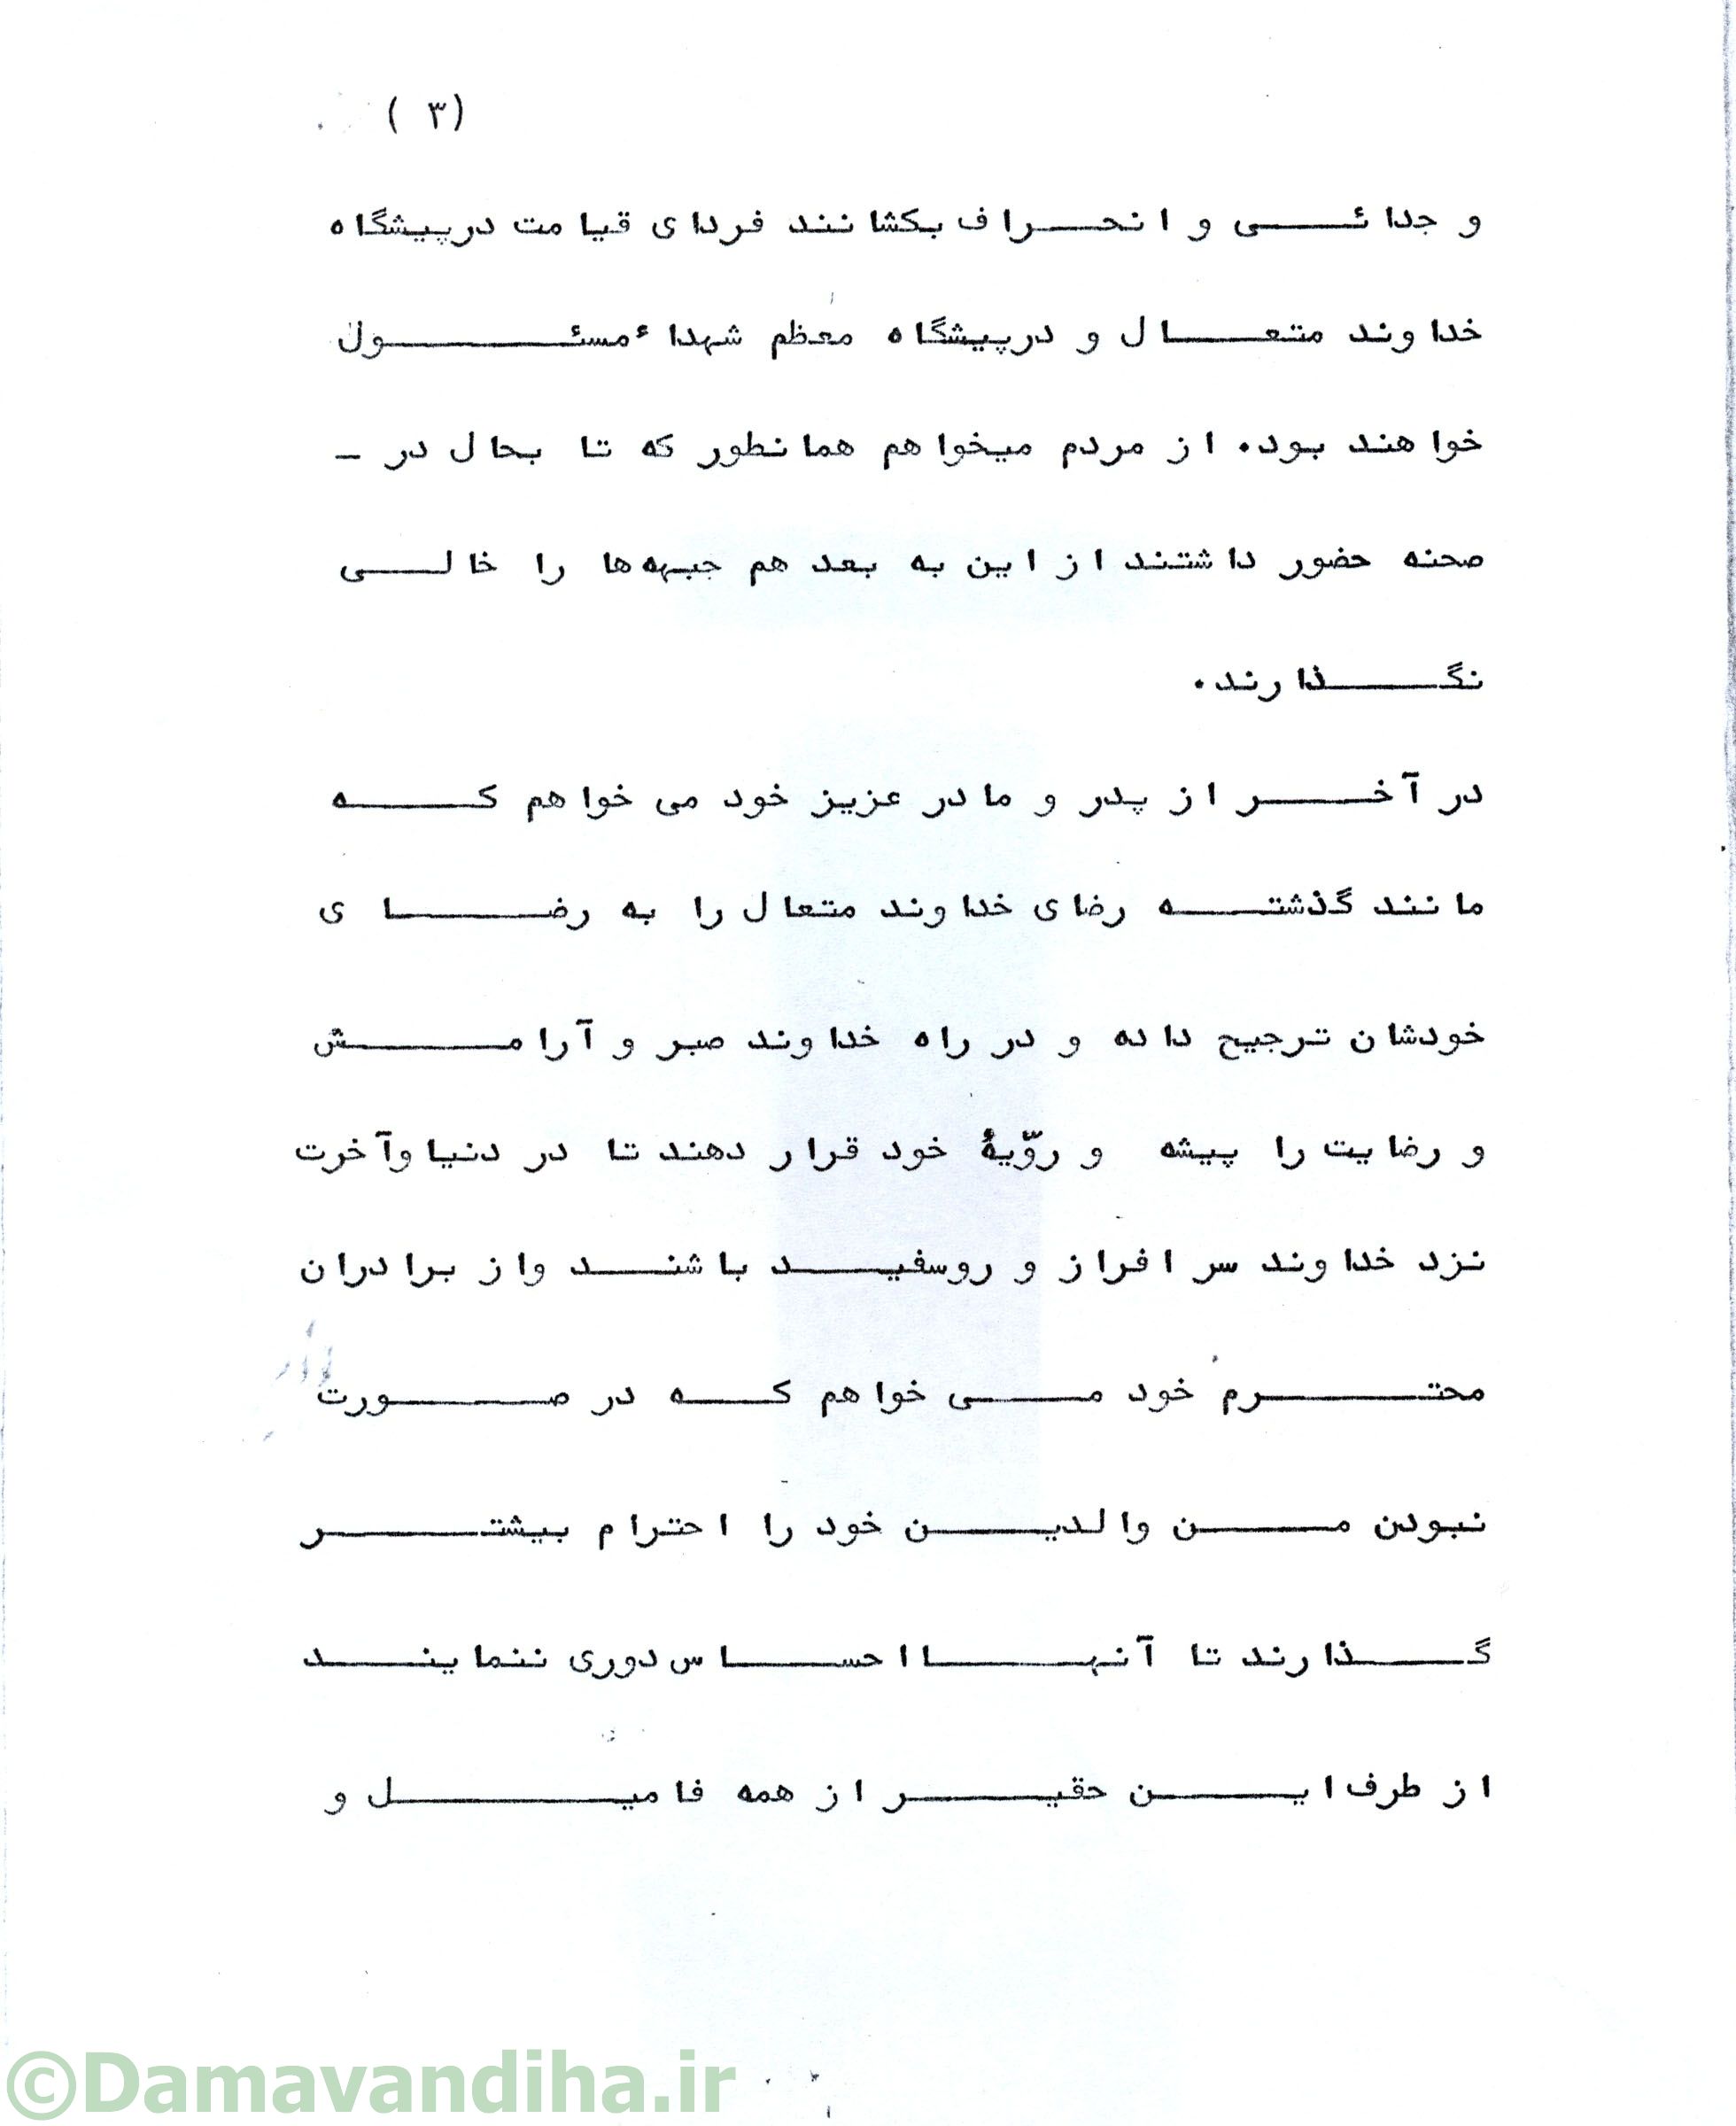 (۳)
و جدائی و انحراف بکشانند فردای قیامت درپیشگاه
خداوند متعال و درپیشگاه معظم شهداء مسئول
خواهند بود. از مردم میخواهم همانطور که تا بحال در -
صحنه حضور داشتند از این به بعد هم جبهه‌ها را خالی
نگذارند.
در آخر از پدر و مادر عزیز خود می خواهم که
مانند گذشته رضای خداوند متعال را به رضای
خودشان ترجیح داده و در راه خداوند صبر و آرامش
و رضایت را پیشه و رویّهٔ خود قرار دهند تا در دنیا وآخرت
نزد خداوند سر افراز و روسفید باشند واز برادران
محترم خود می خواهم که در صورت
نبودن من والدین خود را احترام بیشتر
گذارند تا آنها احساس دوری ننمایند
از طرف این حقیر از همه فامیل و
©Damavandiha.ir